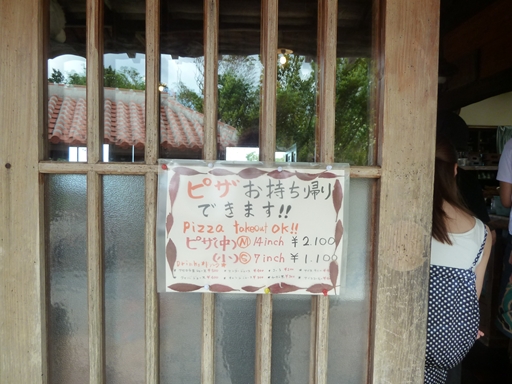 ピザお持ち帰り
できます!!
Pizza takeout OK!!
ピザ(中)Ⓜ14inch ¥2.100
(小)Ⓢ7inch ¥1.100